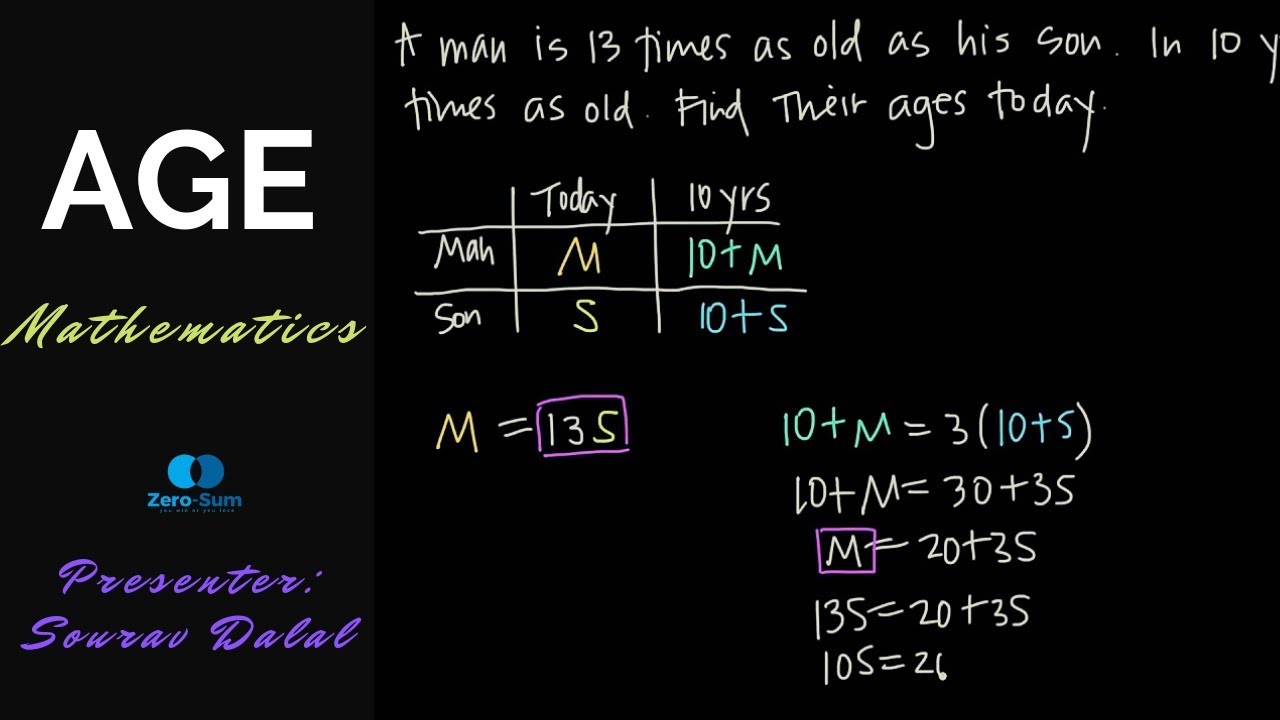 AGE
Mathematics
Zero-Sum
you win or you lose
Presenter:
Sourav Dalal
A man is 13 times as old as his son. In 10 y
times as old. Find Their ages today.
Today 10 yrs
Man M 10+M
Son S 10+S
M = 13S
10+M = 3(10+S)
10+M = 30+3S
M = 20+3S
13S = 20+3S
10S = 20